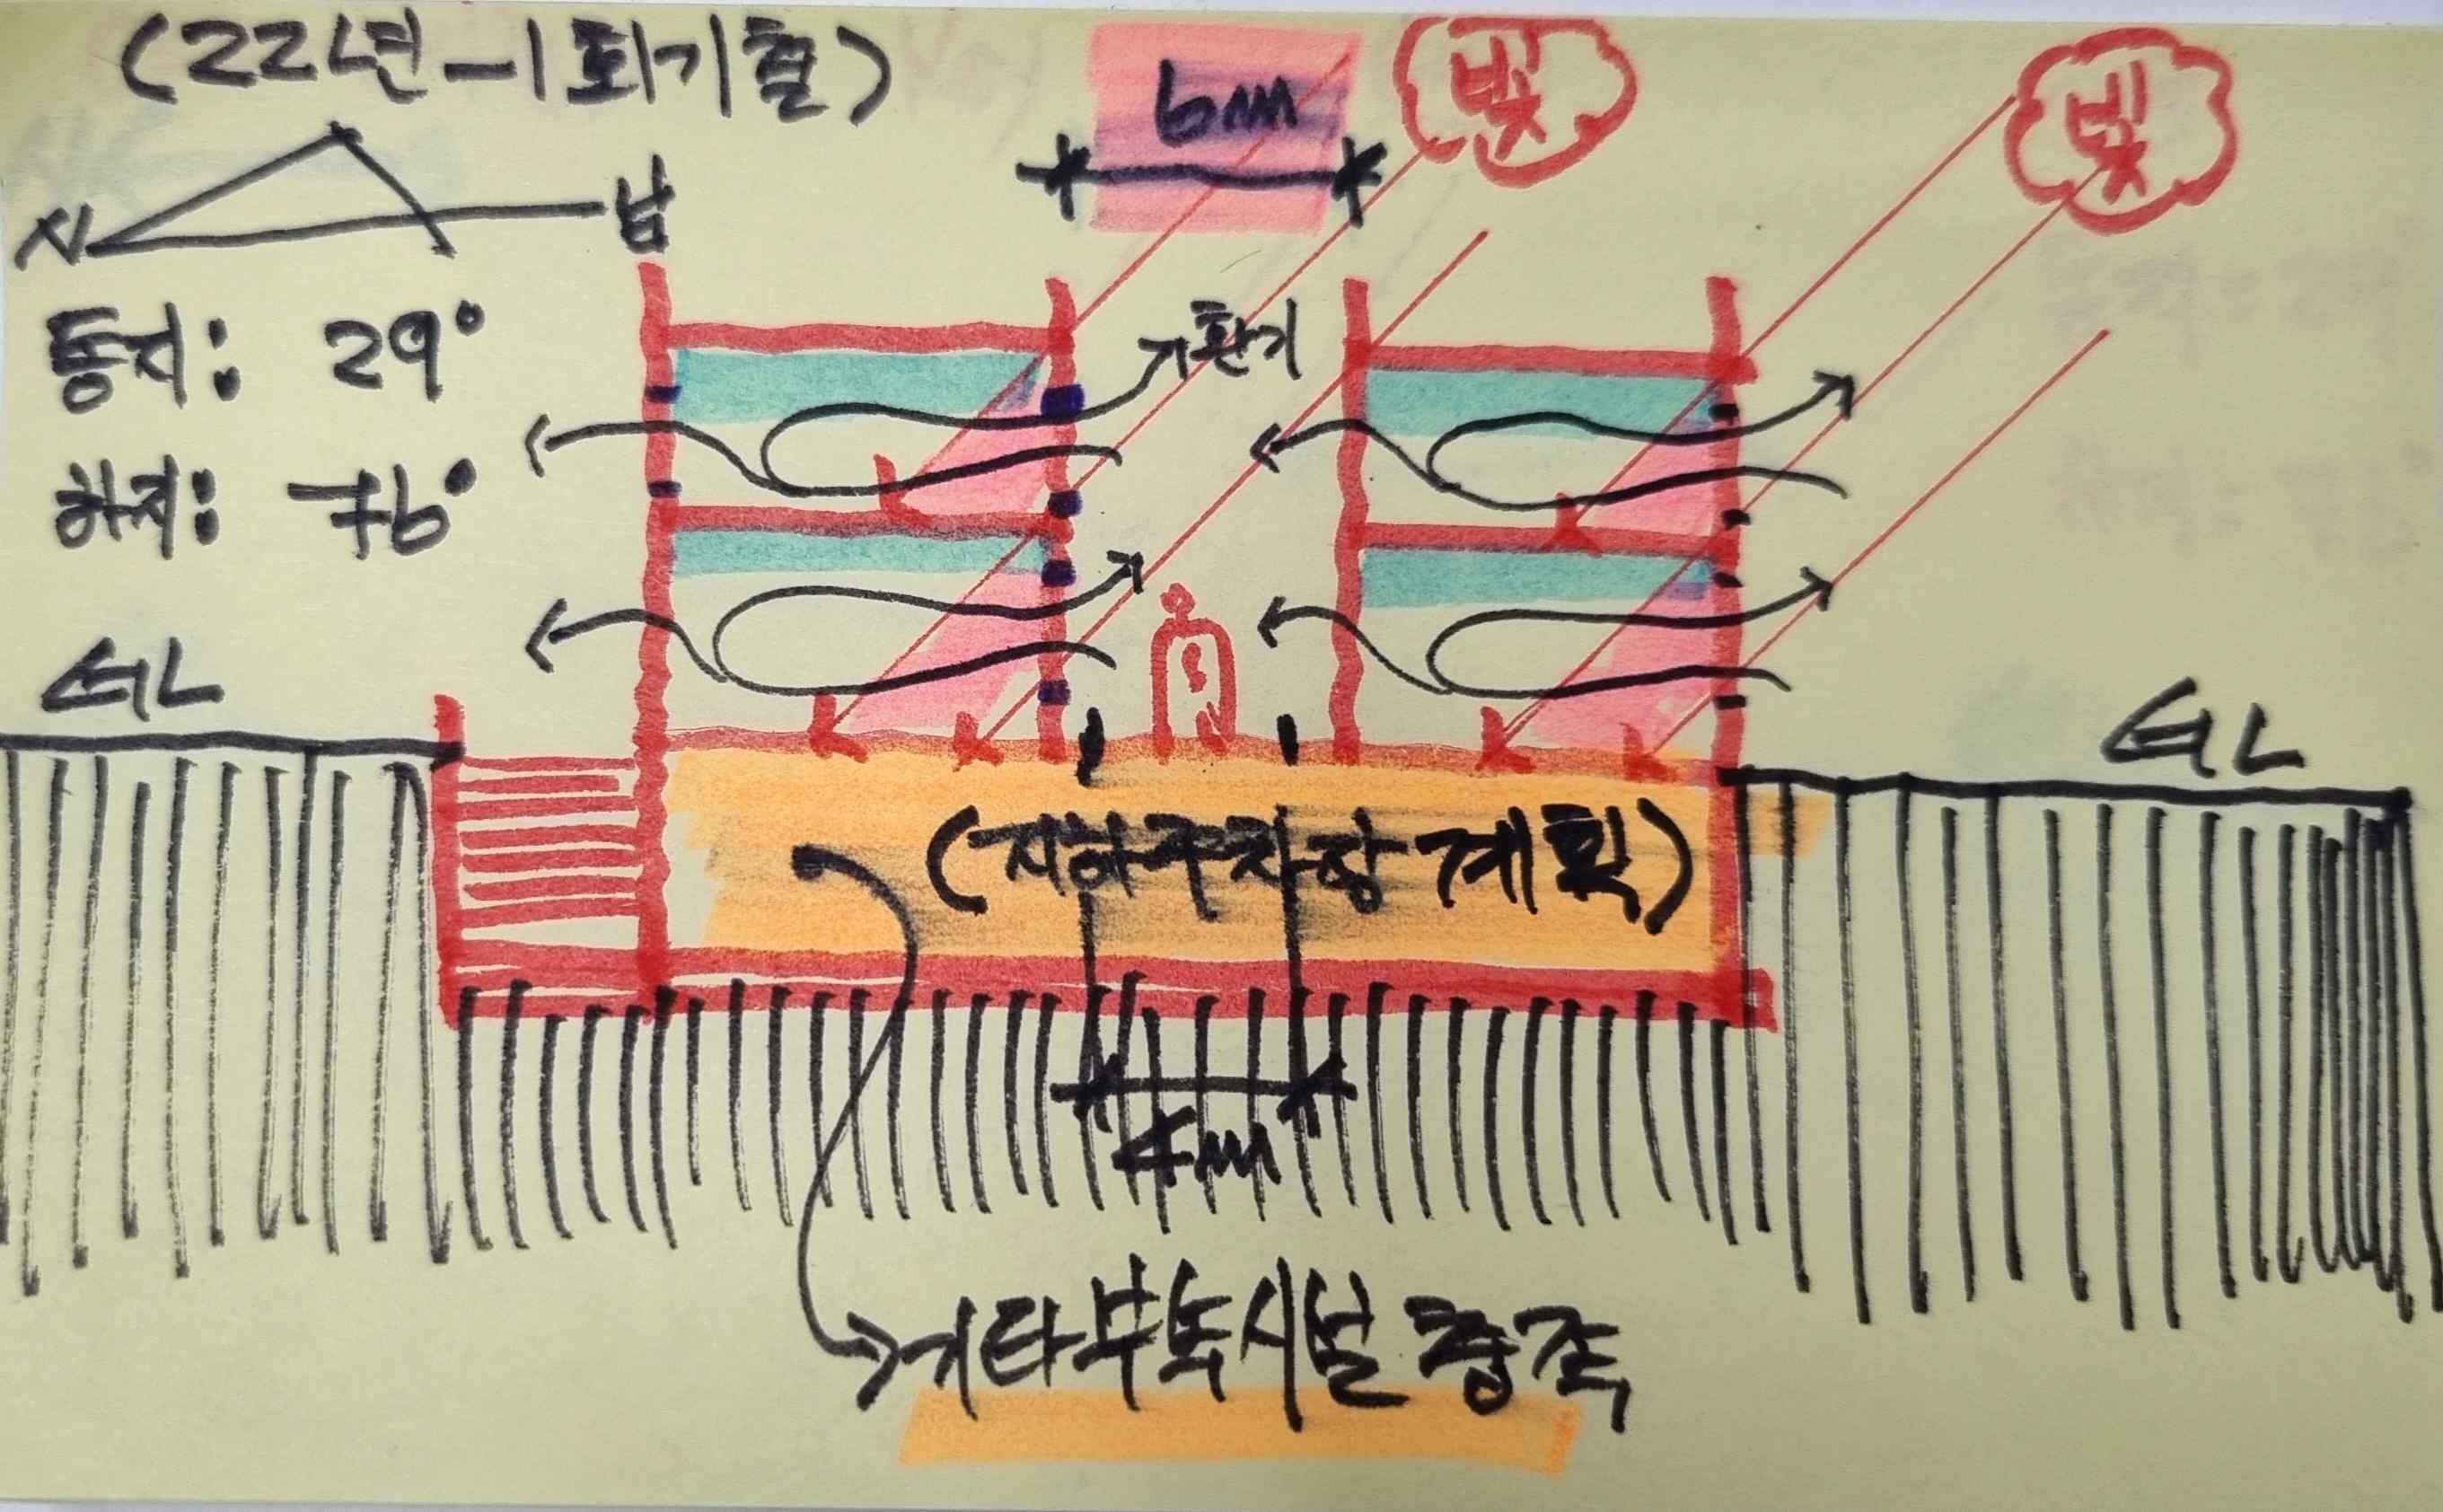 (22년-1회기출)
6m
빛
빛
남
동지: 29°
하지: 76°
환기
GL
GL
(지하주차장 계획)
4m
기타부속시설 충족